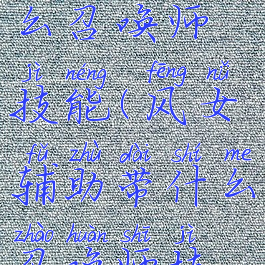 么召唤师
jì néng fēng nǚ
技能(风女
fǔ zhù dài shí me
辅助带什么
zhào huàn shī jì
召唤师技